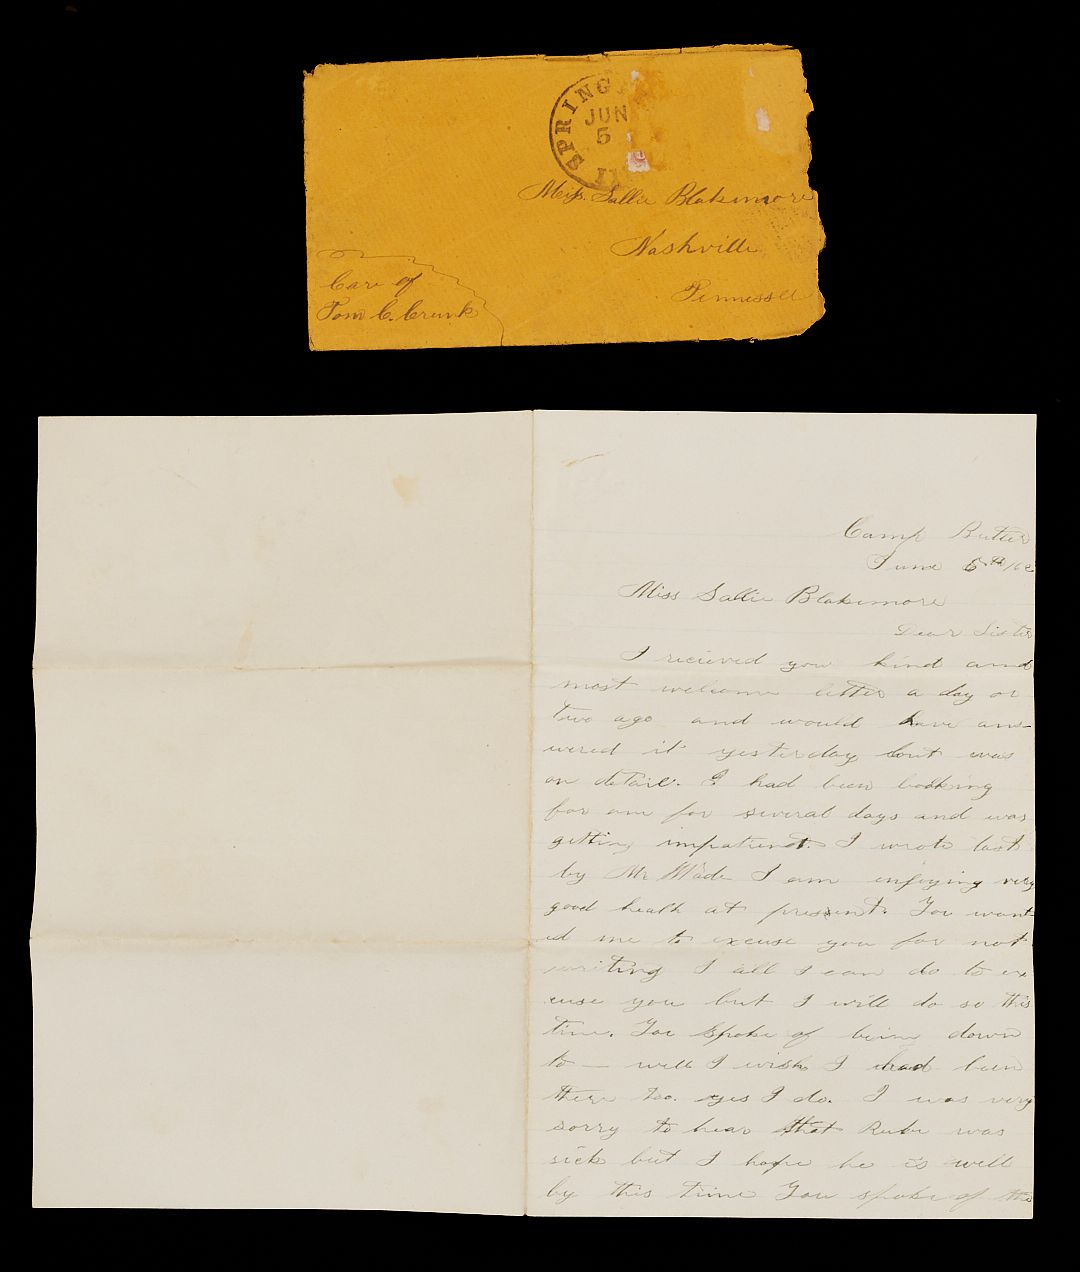 SPRING
JUN
5
Miss. Sallie Blakemore
Nashville
Tennessee
Care of
Tom C. Crunk
Camp Butler
June 5th /62
Miss Sallie Blakemore
Dear Sister
I recieved you kind and
most welcome letter a day or
two ago and would have ans-
wered it yesterday but was
on detail. I had been looking
for one for several days and was
getting impatient. I wrote last
by Mr Wade I am enjoying very
good health at present. You want
ed me to excuse you for not
writing I all I can do to ex
cuse you but I will do so this
time. You spoke of being down
to — well I wish I had been
there too. yes I do. I was very
sorry to hear that Rube was
sick but I hope he is well
by this time You spoke of the